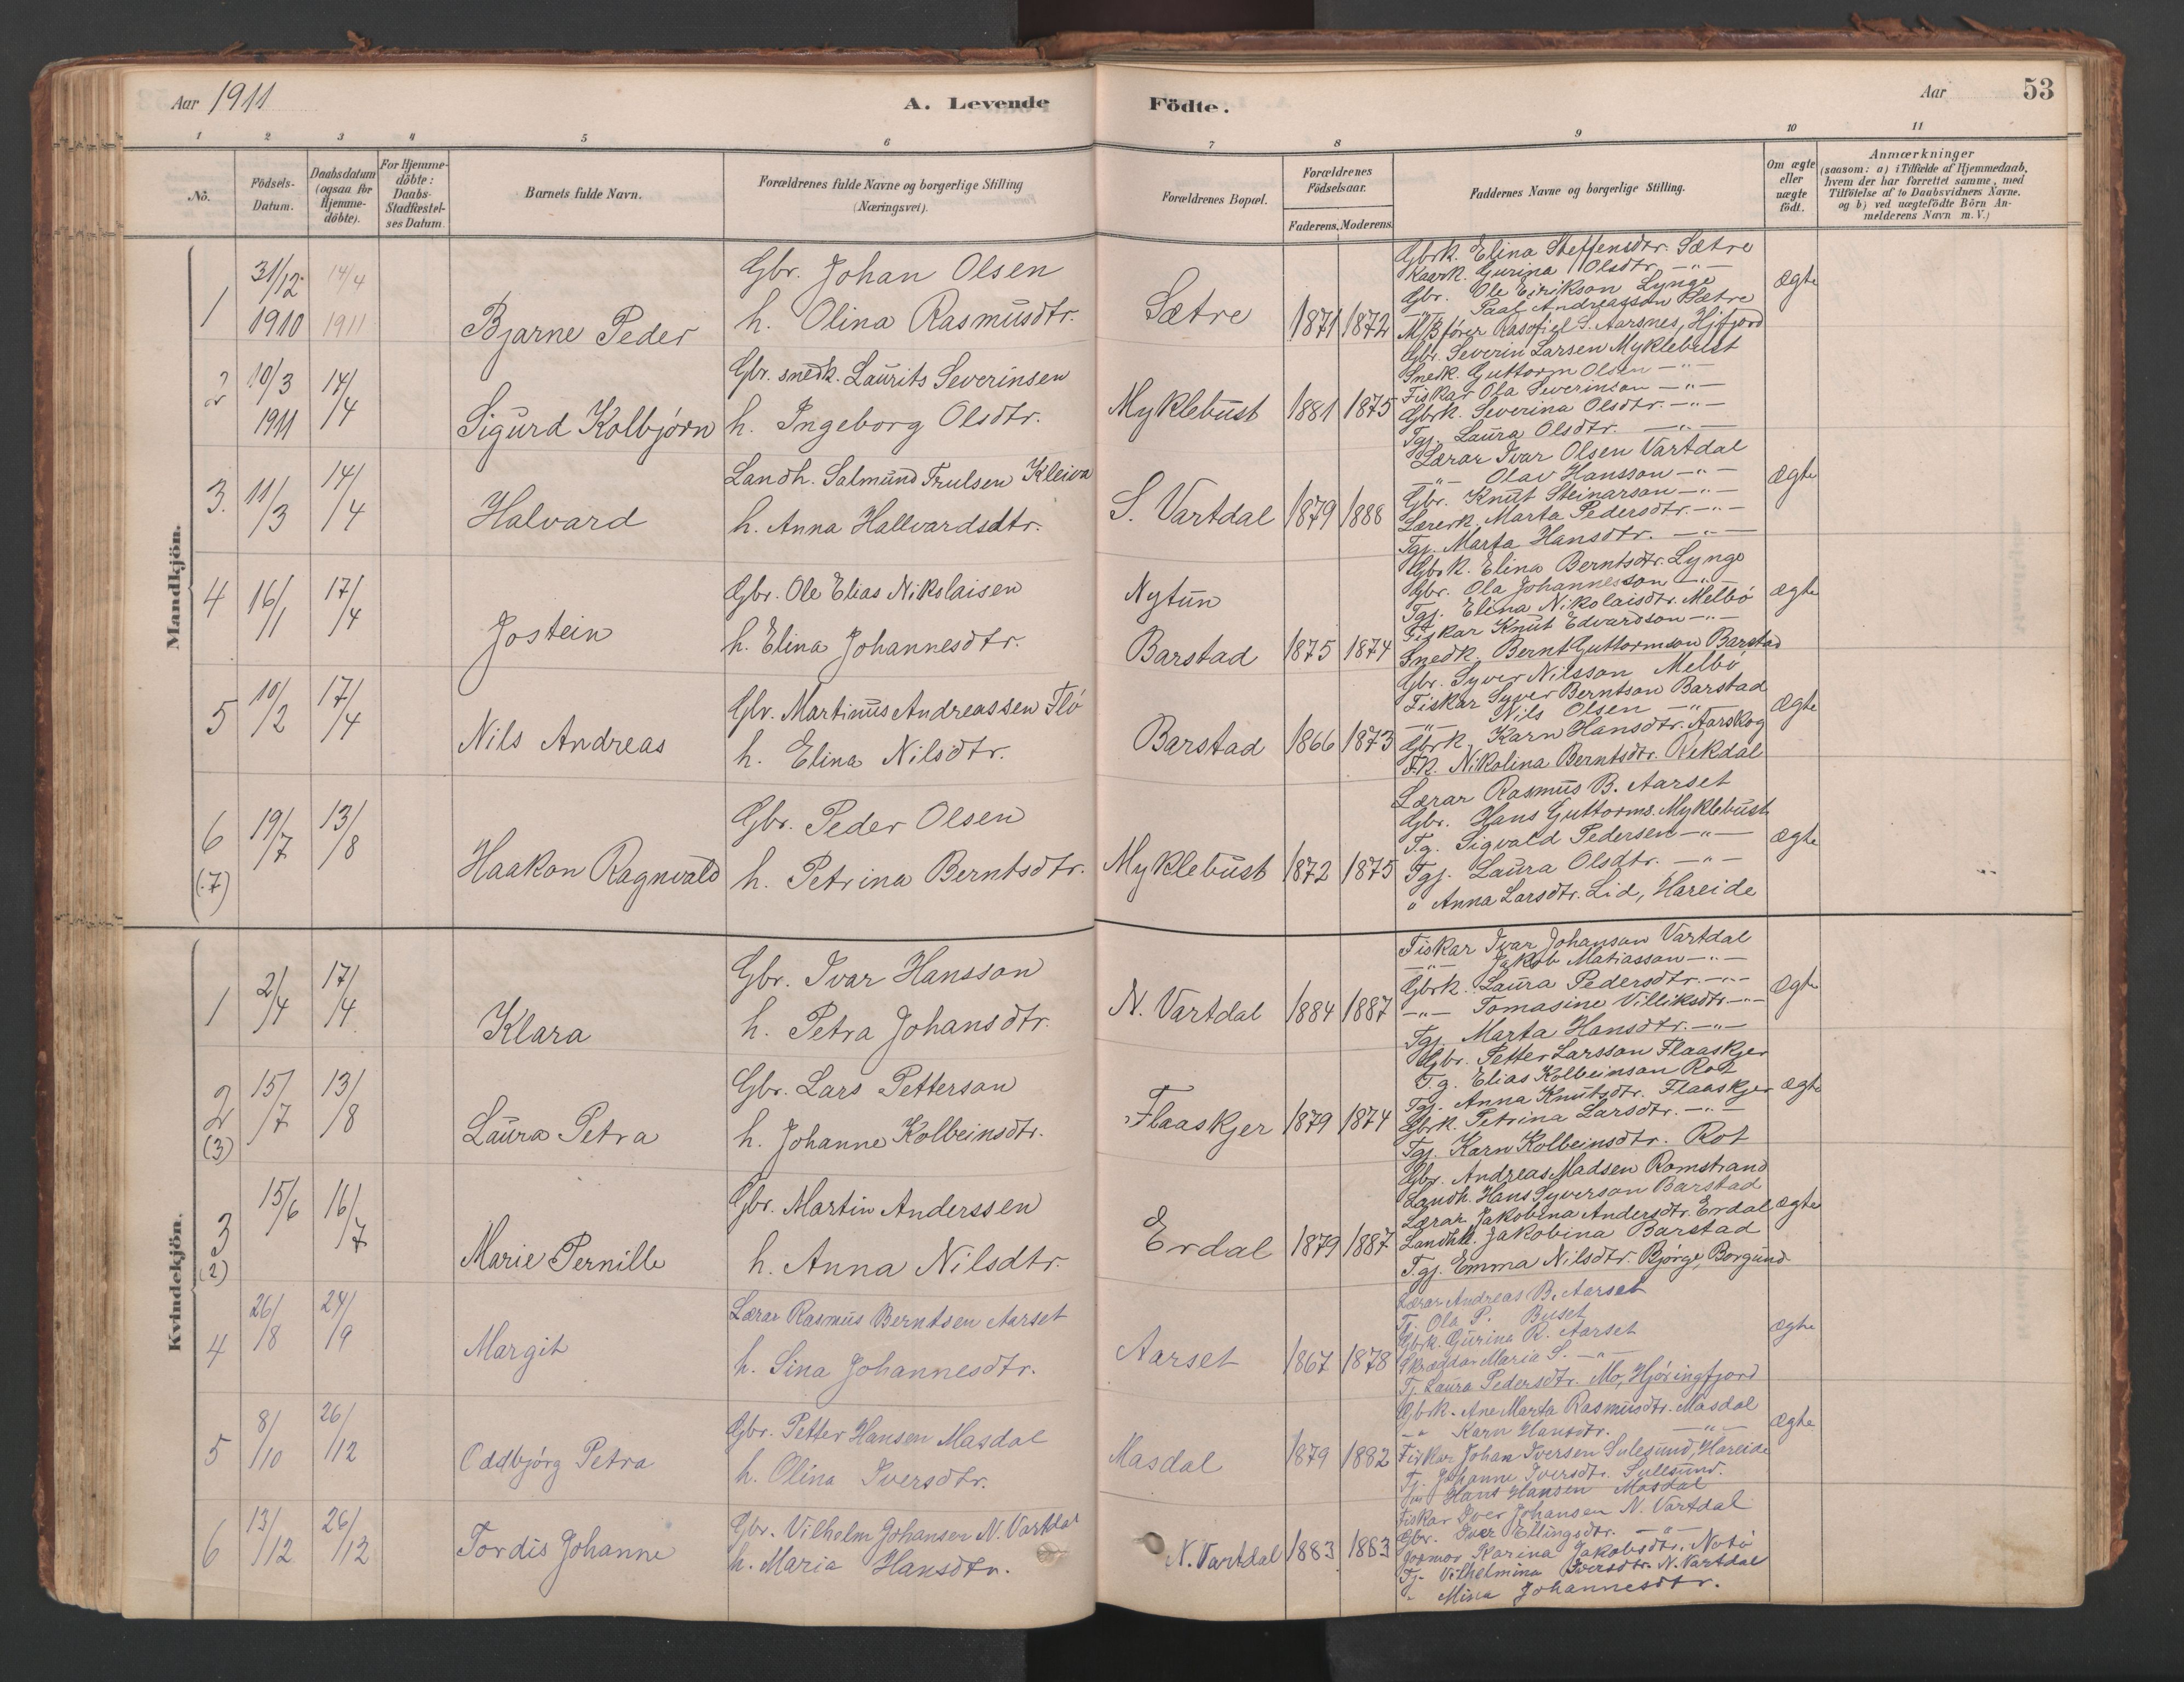 Aar 1911
A. Levende Födte.
Aar 53
1 2 3 4 5 6 7 8 9 10 11
No.
Födsels-Datum.
Daabsdatum (ogsaa for Hjemme-döbte).
For Hjemme-döbte: Daabs-Stadfæstel-ses Datum.
Barnets fulde Navn.
Forældrenes fulde Navne og borgerlige Stilling (Næringsvei).
Forældrenes Bopæl.
Forældrenes Födselsaar.
Faderens. Moderens.
Faddernes Navne og borgerlige Stilling.
Om ægte eller uægte födt.
Anmærkninger
(saasom: a) i Tilfælde af Hjemmedaab,
hvem der har forrettet samme, med
Tilföielse af to Daabsvidners Navne,
og b) ved uægtefödte Börn An-
melderens Navn m. V.)
Mandkjön.
1 31/12 1910 14/4 1911 Bjarne Peder
Gbr. Johan Olsen
h. Olina Rasmusdtr.
Sætre 1871 1872
Gbrk. Elina Steffensdtr. Sætre
Kaark. Gurina Olsdtr. -"-
Gbr. Ole Eirikson Lynge
-"- Paal Andreasson Sætre
M/B förer Rasmus S. Aarsnes, Hjfjord
Ægte
2 10/3 1911 14/4 Sigurd Kolbjørn
Gbr. snedk. Laurits Severinsen
h. Ingeborg Olsdtr.
Myklebust 1881 1875
Gbr. Severin Larsen Myklebust
Snedk. Guttorm Olsen -"-
Fiskar Ola Severinson -"-
Gbrk. Severina Olsdtr. -"-
Tgj. Laura Olsdtr. -"-
3. 11/3 14/4 Halvard
Landh. Salmund Trulsen Kleiva
h. Anna Hallvardsdtr.
S. Vartdal 1879 1888
Lærar Ivar Olsen Vartdal
-"- Olav Hansson -"-
Gbr. Knut Steinarson -"-
Lærerk. Marta Pedersdtr. -"-
Tgj. Marta Hansdtr. -"-
Ægte
4 16/1 17/4 Jostein
Gbr. Ole Elias Nikolaisen
h. Elina Johannesdtr.
Nytun
Barstad 1875 1874
Gbrk. Elina Berntsdtr. Lynge
Gbr. Ola Johannesson -"-
Tgj. Elina Nikolaisdtr. Melbö
Fiskar Knut Edvardson -"-
Snedk. Bernt Guttormson Barstad
Ægte
5 10/2 17/4 Nils Andreas
Gbr. Martinus Andreassen Flö
h. Elina Nilsdtr.
Barstad 1866 1873
Gbr. Syver Nilsson Melbö
Fiskar Syver Berntson Barstad
-"- Nils Olsen -"-
Gbrk. Karn Hansdtr. Aarskog
Fk. Nikolina Berntsdtr. Rekdal
Ægte
6 (7) 19/7 13/8 Haakon Ragnvald
Gbr. Peder Olsen
h. Petrina Berntsdtr.
Myklebust 1872 1875
Lærar Rasmus B. Aarset
Gbr. Hans Guttorms. Myklebust
T.g. Sigvald Pedersen -"-
Tgj. Laura Olsdtr. -"-
" Anna Larsdtr. Lid, Hareide
Ægte
Kvindekjön.
1 2/4 17/4 Klara
Gbr. Ivar Hansson
h. Petra Johansdtr.
N. Vartdal 1884 1887
Fiskar Ivar Johanson Vartdal
-"- Jakob Matiasson -"-
Gbrk. Laura Pedersdtr. -"-
-"- Tomasine Villiksdtr. -"-
Tgj. Marta Hansdtr. -"-
Ægte
2 (3) 15/7 13/8 Laura Petra
Gbr. Lars Petterson
h. Johanne Kolbeinsdtr.
Flaaskjer 1879 1874
Gbr. Petter Larsson Flaaskjer
T.g. Elias Kolbeinson Rot
Tgj. Anna Knutsdtr. Flaaskjer
Gbrk. Petrina Larsdtr. -"-
Tgj. Karn Kolbeinsdtr. Rot
Ægte
3 (2) 15/6 16/7 Marie Pernille
Gbr. Martin Anderssen
h. Anna Nilsdtr.
Erdal 1879 1887
Gbr. Andreas Madsen Romstrand
Landh. Hans Syverson Barstad
Lærar. Jakobina Andersdtr. Erdal
Landhk. Jakobina Barstad
T.gj. Emma Nilsdtr. Bjørge, Borgund
Ægte
4 26/8 24/9 Margit
Lærar Rasmus Berntsen Aarset
h. Sina Johannesdtr.
Aarset 1867 1878
Lærar Andreas B. Aarset
Tj. Ola P. Buset
Gbrk. Gurina R. Aarset
Skræddar Maria S. -"-
Tj. Laura Pedersdtr. Mo, Hjöringfjord
Ægte
5 8/10 26/12 Oddbjórg Petra
Gbr. Petter Hansen Masdal
h. Olina Iversdtr.
Masdal 1879 1882
Gbrk. Ane Marta Rasmusdtr. Masdal
-"- Karn Hansdtr. -"-
Fiskar Johan Iversen Sulesund, Hareide
Tj. Johanne Iversdtr. Sulesund.
Hans Hansen Masdal
Ægte
6 13/12 26/12 Tordis Johanne
Gbr. Vilhelm Johansen N. Vartdal
h. Maria Hansdtr.
N. Vartdal 1883 1883
Fiskar Iver Johansen N. Vartdal
Gbr. Iver Ellingsdtr. -"-
Jormor Karina Jakobsdtr. Notö
Tj. Vilhelmina Iversdtr. N. Vartdal
" Mina Johannesdtr.